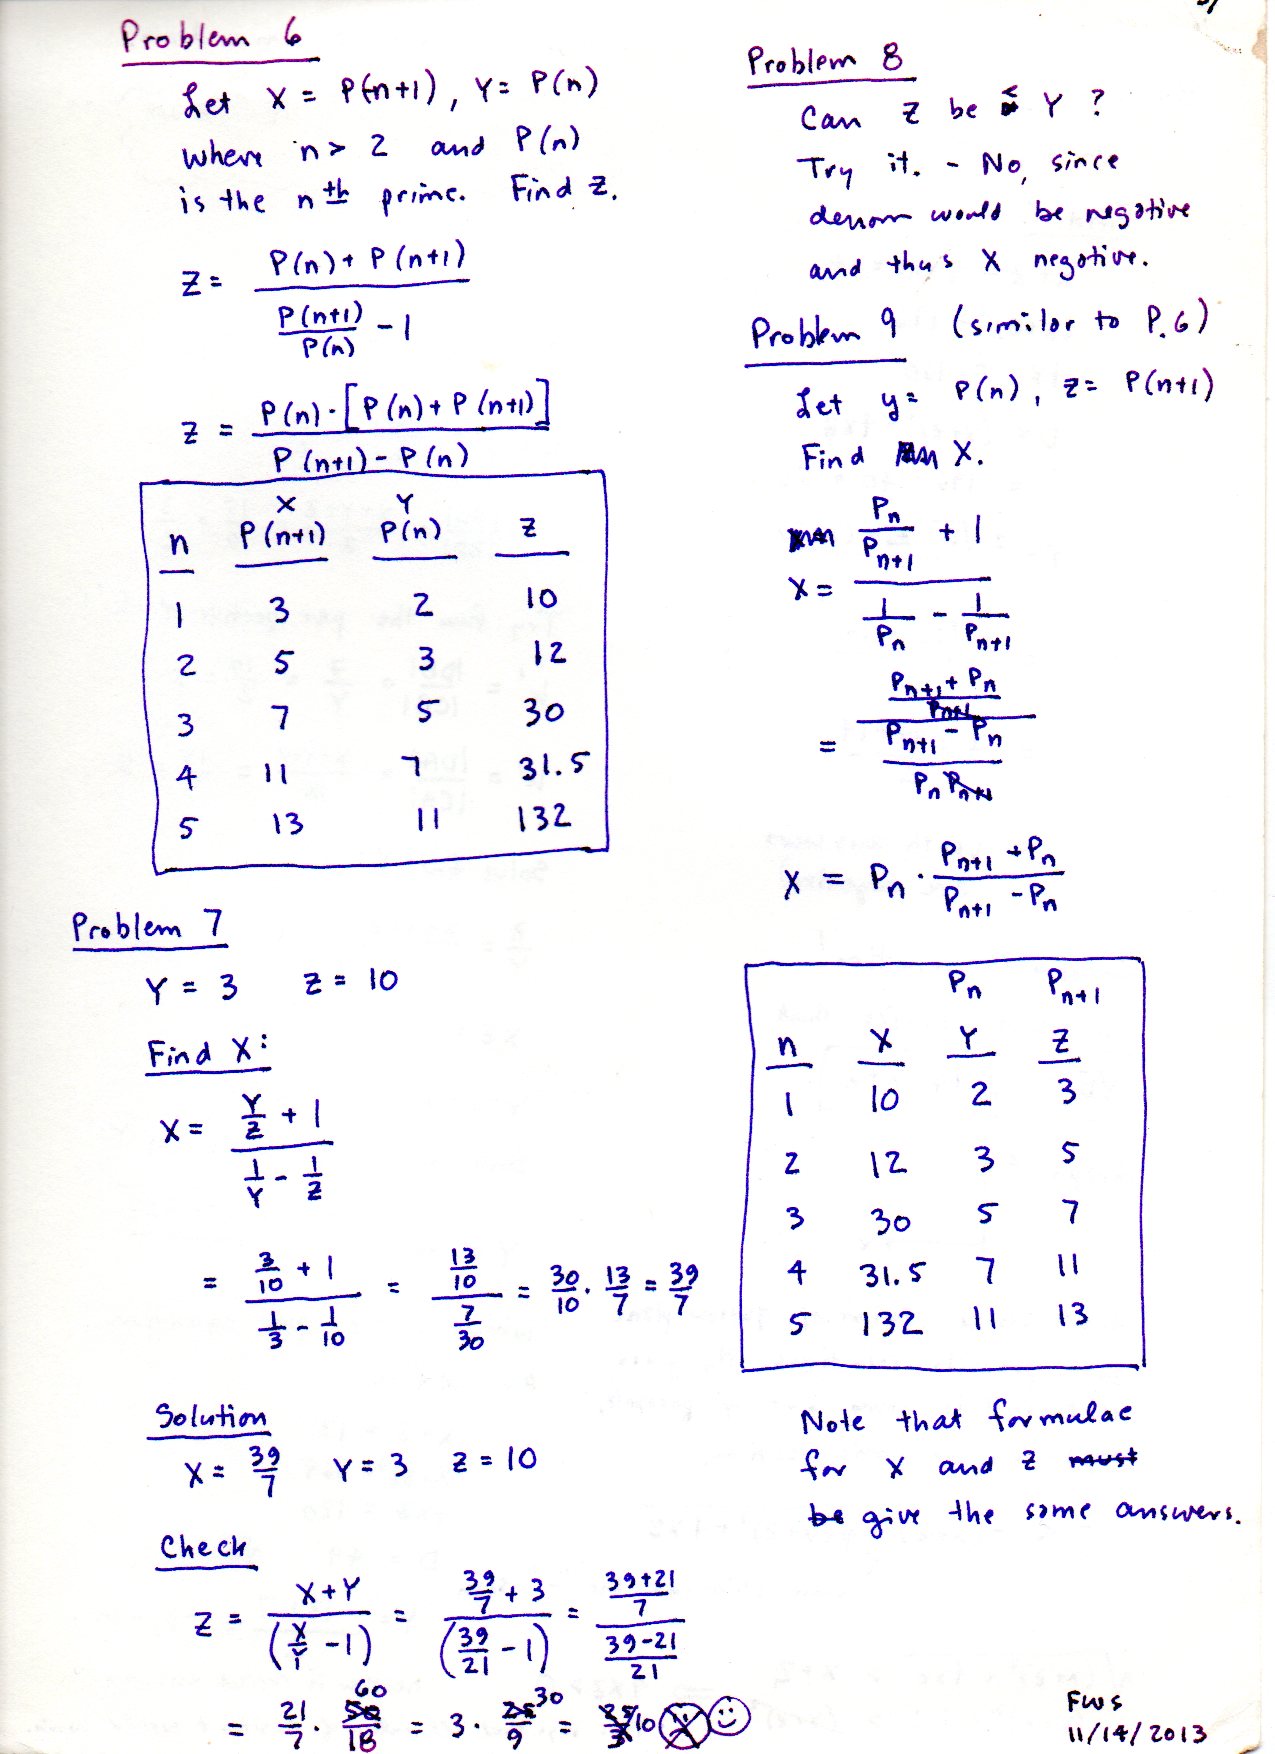 Problem 6
Let X = P(n+1), Y = P(n)
where n > 2 and P(n)
is the nth prime. Find Z.
Z = (P(n) + P(n+1)) / (P(n+1)/P(n) - 1)
Z = P(n) · [P(n) + P(n+1)] / (P(n+1) - P(n))
X Y
n P(n+1) P(n) Z
1 3 2 10
2 5 3 12
3 7 5 30
4 11 7 31.5
5 13 11 132
Problem 7
Y = 3 Z = 10
Find X:
X = (Y/Z + 1) / (1/Y - 1/Z)
= (3/10 + 1) / (1/3 - 1/10) = (13/10) / (7/30) = 30/10 · 13/7 = 39/7
Solution
X = 39/7 Y = 3 Z = 10
Check
Z = (X+Y) / (X/Y - 1) = (39/7 + 3) / (39/21 - 1) = ((39+21)/7) / ((39-21)/21)
= 21/7 · 60/18 = 3 · 30/9 = 10
Problem 8
Can Z be ≤ Y ?
Try it. - No, since
denom would be negative
and thus X negative.
Problem 9 (similar to P.6)
Let y = P(n), z = P(n+1)
Find X.
X = (Pn/Pn+1 + 1) / (1/Pn - 1/Pn+1)
= ((Pn+1 + Pn)/Pn+1) / ((Pn+1 - Pn)/(Pn Pn+1))
X = Pn · (Pn+1 + Pn) / (Pn+1 - Pn)
Pn Pn+1
n X Y Z
1 10 2 3
2 12 3 5
3 30 5 7
4 31.5 7 11
5 132 11 13
Note that formulae
for X and Z must
be give the same answers.
FWS
11/14/2013